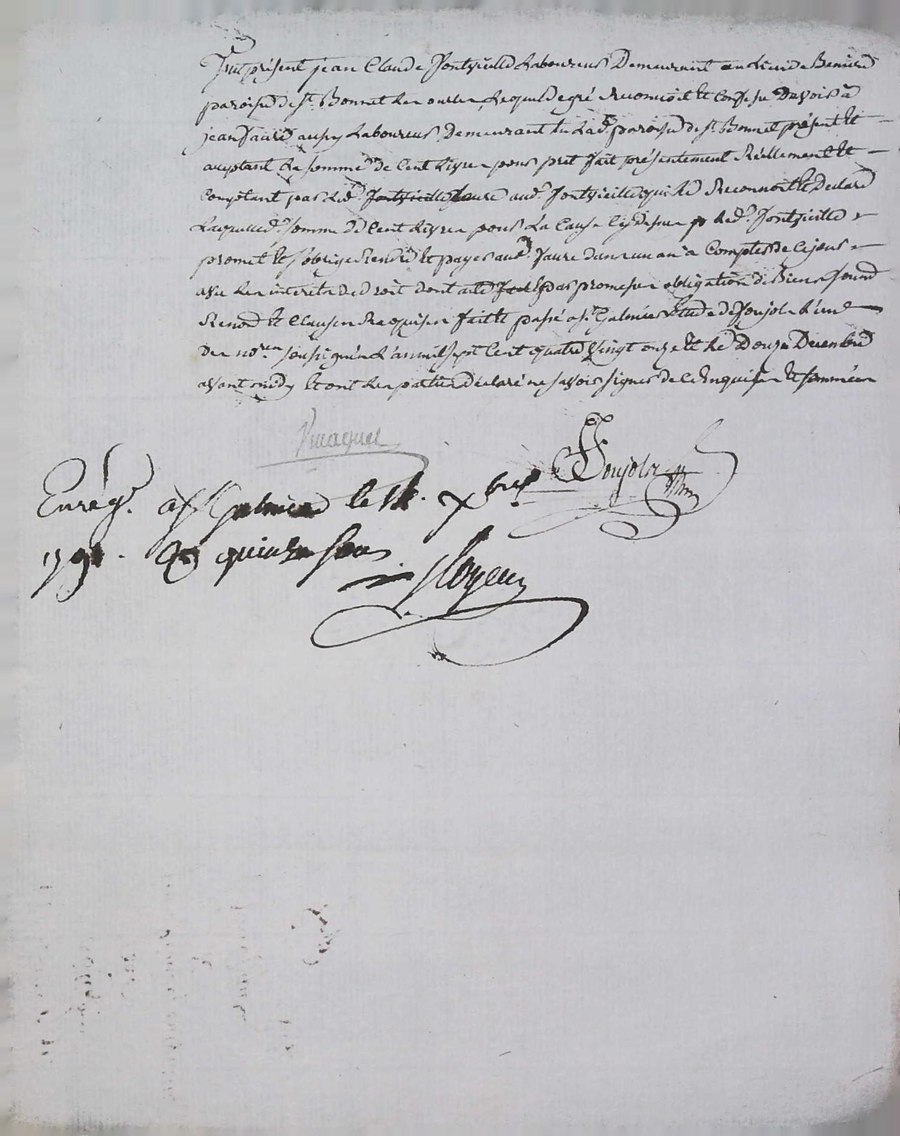 Fut présent jean Claude fontvieille Laboureur Demeurant au Lieu de
paroisse de St. Bonnet Les oulles Lequel de gré Reconnoit Et Confesse Devoir à
jean faure aussy Laboureur Demeurant Sur Lade. paroisse de St Bonnet présent Et
aceptant La somme de Cent Livres pour pret fait présentement Réellement Et
Comptant par Led. aud. fontvieille qui Le Reconnoit Et Declare
Laquelle d. somme de Cent Livres pour La Cause Cy dessus Led. fontvieille
promet Et s'oblige Rendre Et payer aud. faure dans un an à Compter de Ce jour
avec Les interets de Droit dont acte par promesses obligation de Biens soumd
Renond Et Clauses Requises fait Et passé à St Galmier Etude de foujols L'un
des nores. soussignés L'an mil sept Cent quatre Vingt onze Et Le Douze Decembre
avant midy Et ont Les parties déclaré ne savoir signer de Ce Enquises Et sommées
foujols
Enrégé. à St Galmier le 14. xbre
1791. Rs quinze sous